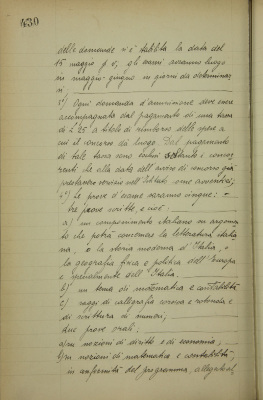 430
delle domande si è stabilita la data del
15 maggio p.v., gli esami avranno luogo
in maggio-giugno in giorni da determinar
si;
2°) Ogni domanda d'ammissione deve essere
accompagnata dal pagamento di una tassa
di £ 25 a titolo di rimborso delle spese a
cui il concorso dà luogo. Dal pagamento
di tale tassa sono esclusi soltanto i concor
renti che alla data dell'avviso di concorso già
prestarono servizio nell'Istituto come avventizi;
le prove d'esame saranno cinque:
tre prove scritte, e cioè:
a) un componimento italiano su argomen
to che potrà concernere la letteratura italia
na, o la storia moderna d'Italia, o
la geografia fisica e politica dell'Europa
e specialmente dell'Italia;
b) un tema di matematica e contabilità
c) saggi di calligrafia corsiva e rotonda e
di scrittura di numeri;
due prove orali:
a) su nozioni di diritto e di economia;
b) su nozioni di matematica e contabilità,
in conformità del programma, allegato al